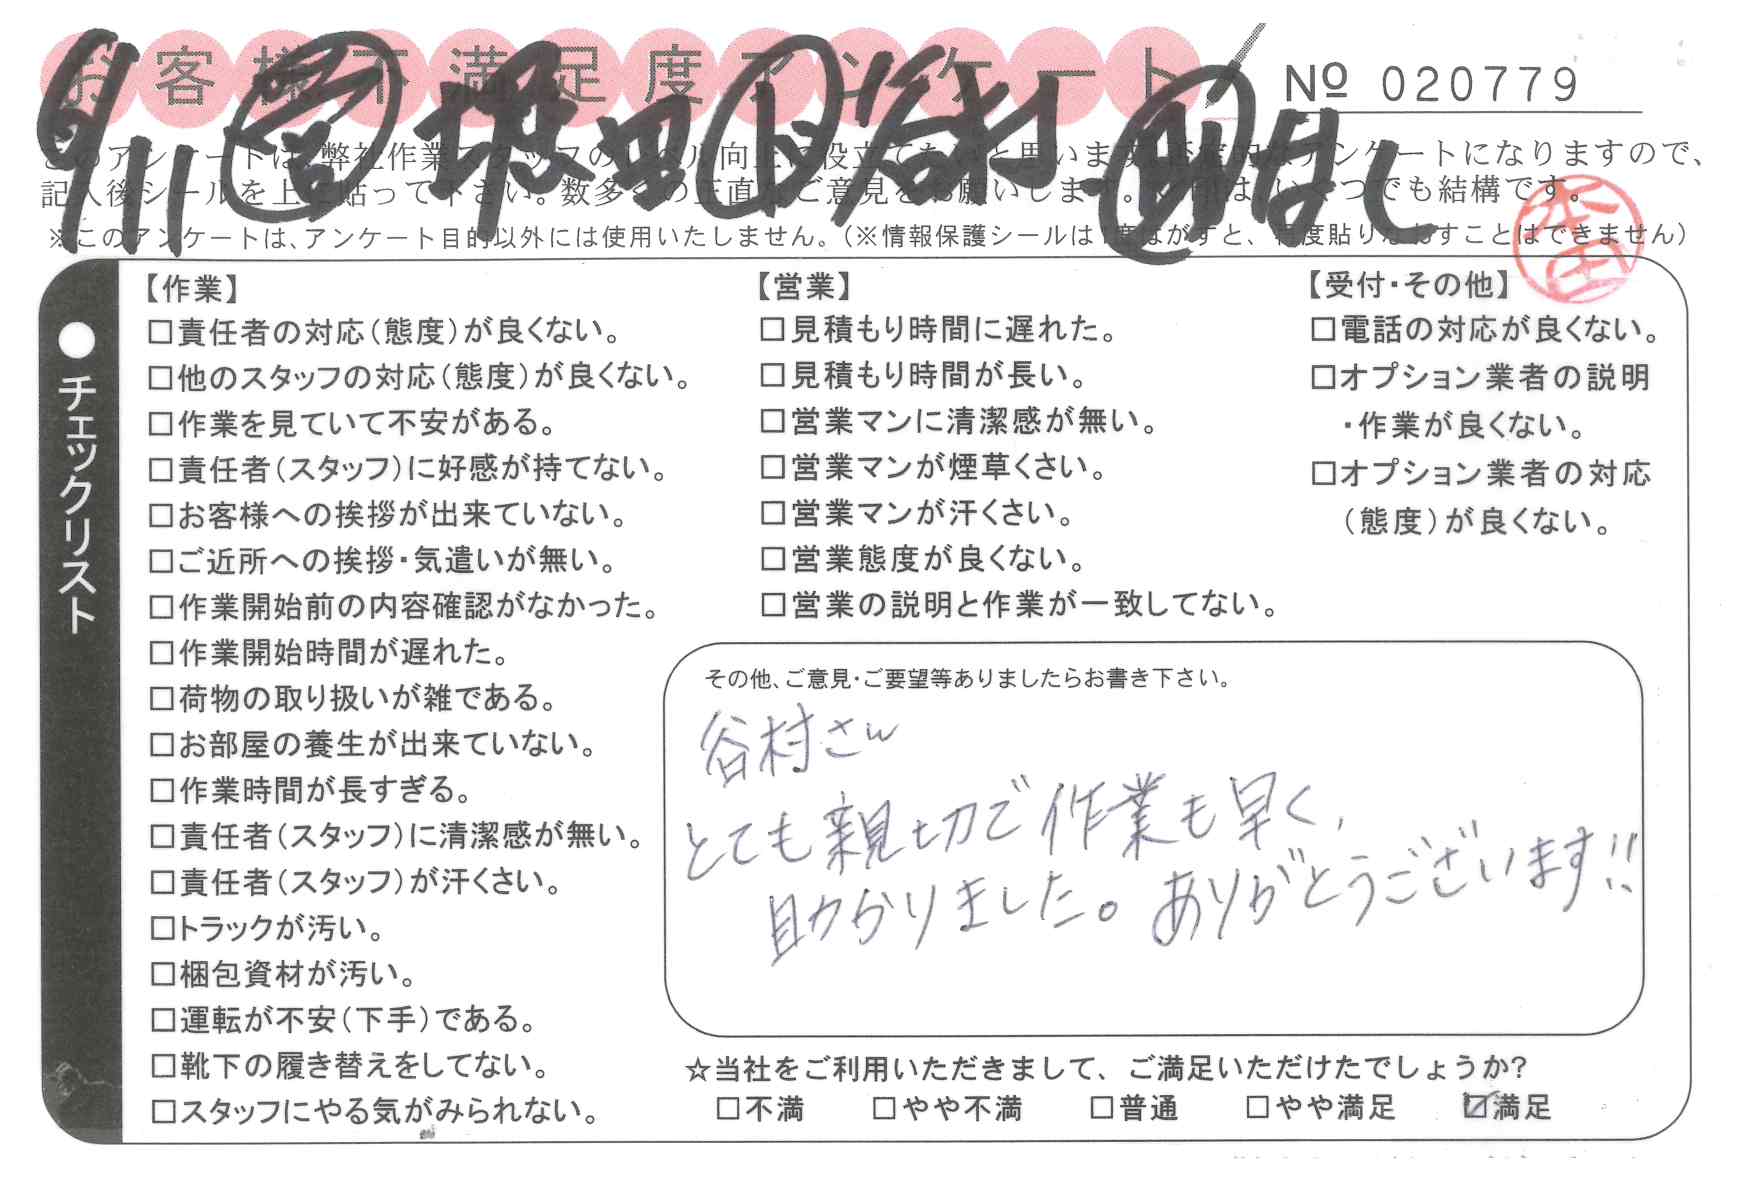 お客様不満足度アンケート
№ 020779
9/11 営 堀田 作 谷村 助 はし
このアンケートは、弊社作業スタッフのレベル向上に役立てたいと思います。アンケートになりますので、
記入後シールを上に貼って下さい。数多くの正直なご意見をお願いします。はいくつでも結構です。
※このアンケートは、アンケート目的以外には使用いたしません。(※情報保護シールは1度はがすと、再度貼りなおすことはできません)
本田
●チェックリスト
【作業】
□責任者の対応(態度)が良くない。
□他のスタッフの対応(態度)が良くない。
□作業を見ていて不安がある。
□責任者(スタッフ)に好感が持てない。
□お客様への挨拶が出来ていない。
□ご近所への挨拶・気遣いが無い。
□作業開始前の内容確認がなかった。
□作業開始時間が遅れた。
□荷物の取り扱いが雑である。
□お部屋の養生が出来ていない。
□作業時間が長すぎる。
□責任者(スタッフ)に清潔感が無い。
□責任者(スタッフ)が汗くさい。
□トラックが汚い。
□梱包資材が汚い。
□運転が不安(下手)である。
□靴下の履き替えをしてない。
□スタッフにやる気がみられない。
【営業】
□見積もり時間に遅れた。
□見積もり時間が長い。
□営業マンに清潔感が無い。
□営業マンが煙草くさい。
□営業マンが汗くさい。
□営業態度が良くない。
□営業の説明と作業が一致してない。
【受付・その他】
□電話の対応が良くない。
□オプション業者の説明
・作業が良くない。
□オプション業者の対応
(態度)が良くない。
その他、ご意見・ご要望等ありましたらお書き下さい。
谷村さん
とても親切で作業も早く、
助かりました。ありがとうございます!!
☆当社をご利用いただきまして、ご満足いただけたでしょうか?
□不満 □やや不満 □普通 □やや満足 ☑満足